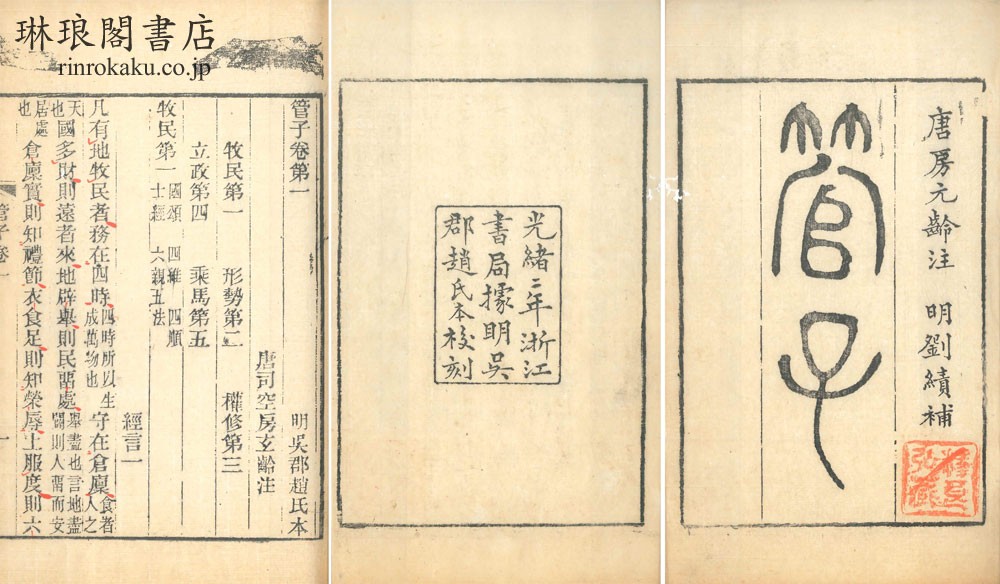 琳琅閣書店
rinrokaku.co.jp
唐房元齡注　明劉績補
管子
光緒二年浙江
書局據明吳
郡趙氏本校刻
管子卷第一　明吳郡趙氏本
唐司空房玄齡注
牧民第一　形勢第二　權修第三
立政第四　乘馬第五
經言一
牧民第一　國頌　四維　四順　士經　六親五法
凡有地牧民者務在四時四時所以生成萬物也守在倉廩食者人之
天也國多財則遠者來地辟舉則民畱處舉盡也言地盡闢則人畱而安
居處也倉廩實則知禮節衣食足則知榮辱上服度則六
管子卷一
一